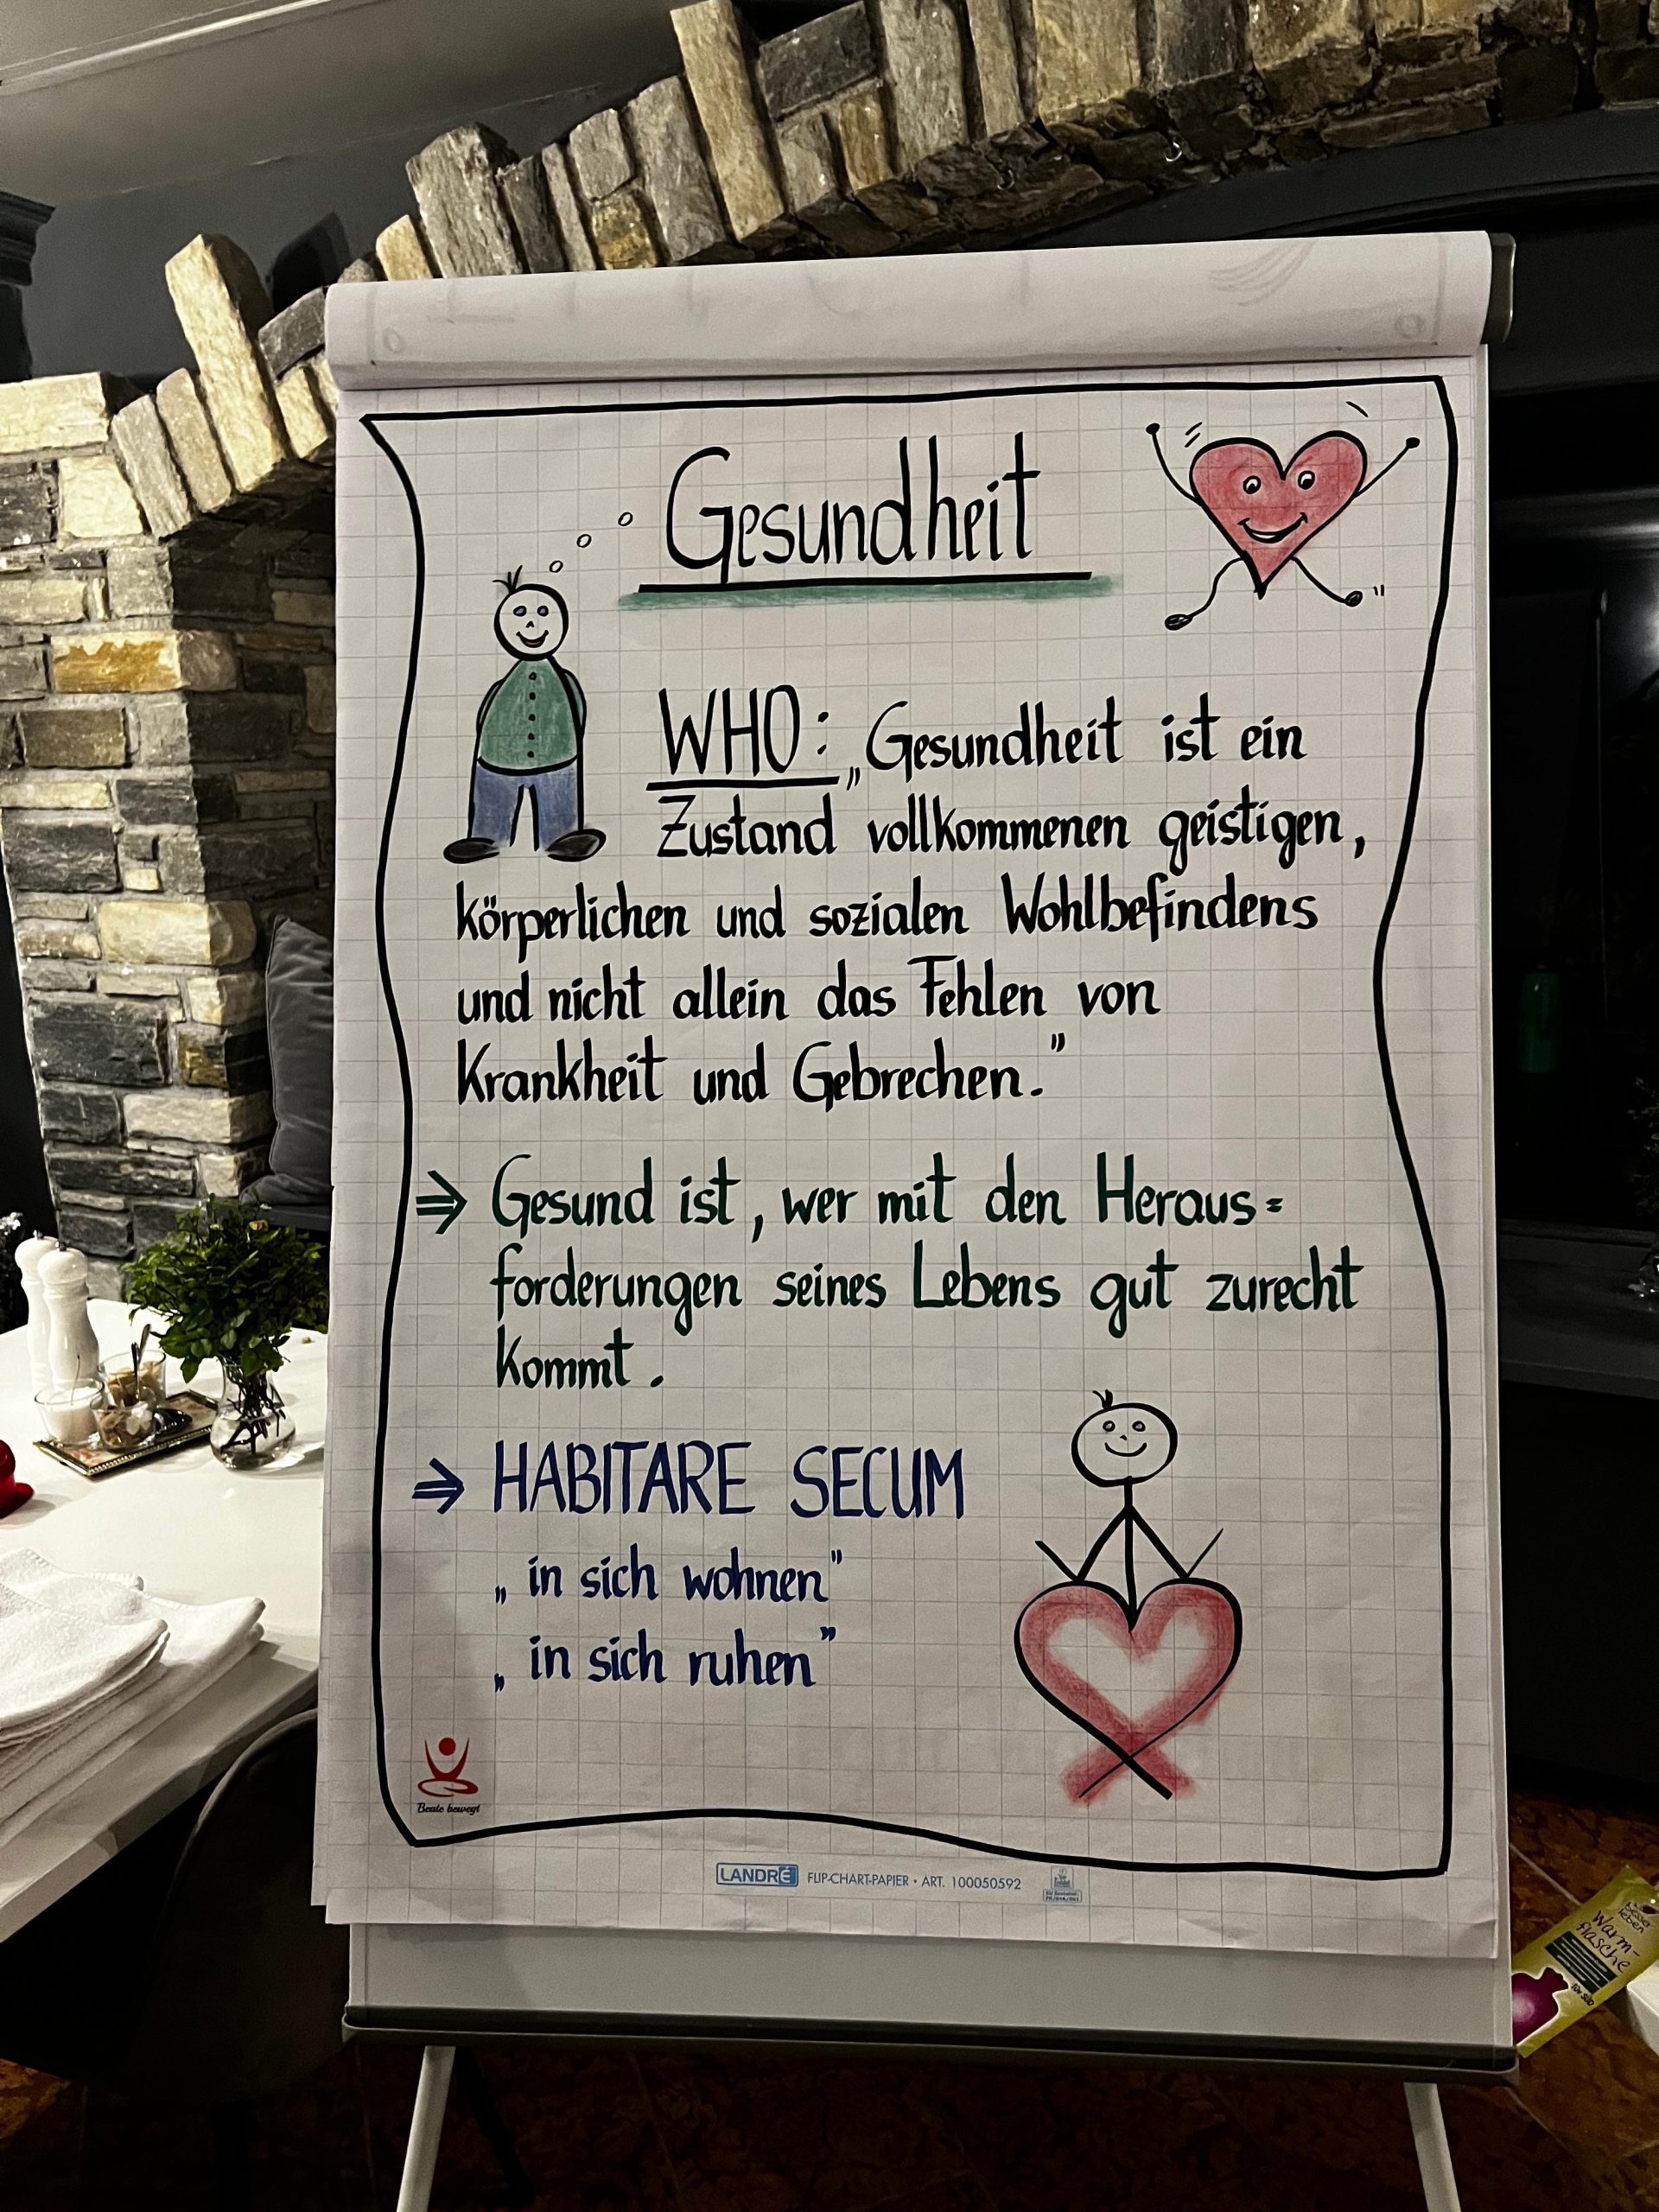 Gesundheit
WHO: „Gesundheit ist ein
Zustand vollkommenen geistigen,
körperlichen und sozialen Wohlbefindens
und nicht allein das Fehlen von
Krankheit und Gebrechen."
⇒ Gesund ist, wer mit den Heraus=
forderungen seines Lebens gut zurecht
kommt.
⇒ HABITARE SECUM
„in sich wohnen"
„in sich ruhen"
Beate bewegt
LANDRÉ FLIP-CHART-PAPIER • ART. 100050592
leben
Warm-
flasche